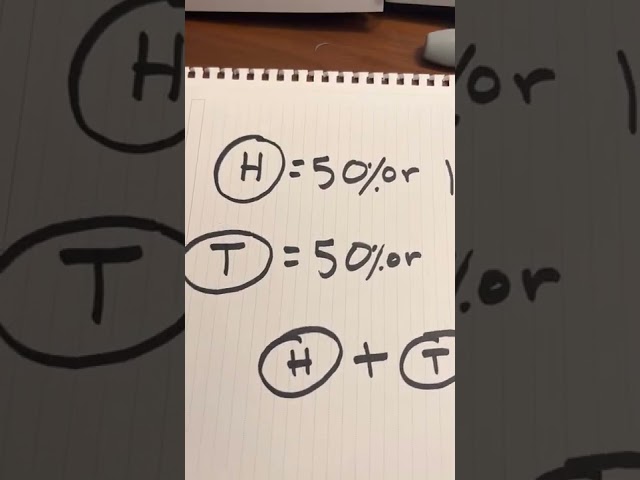 H = 50% or
T = 50% or
H + T